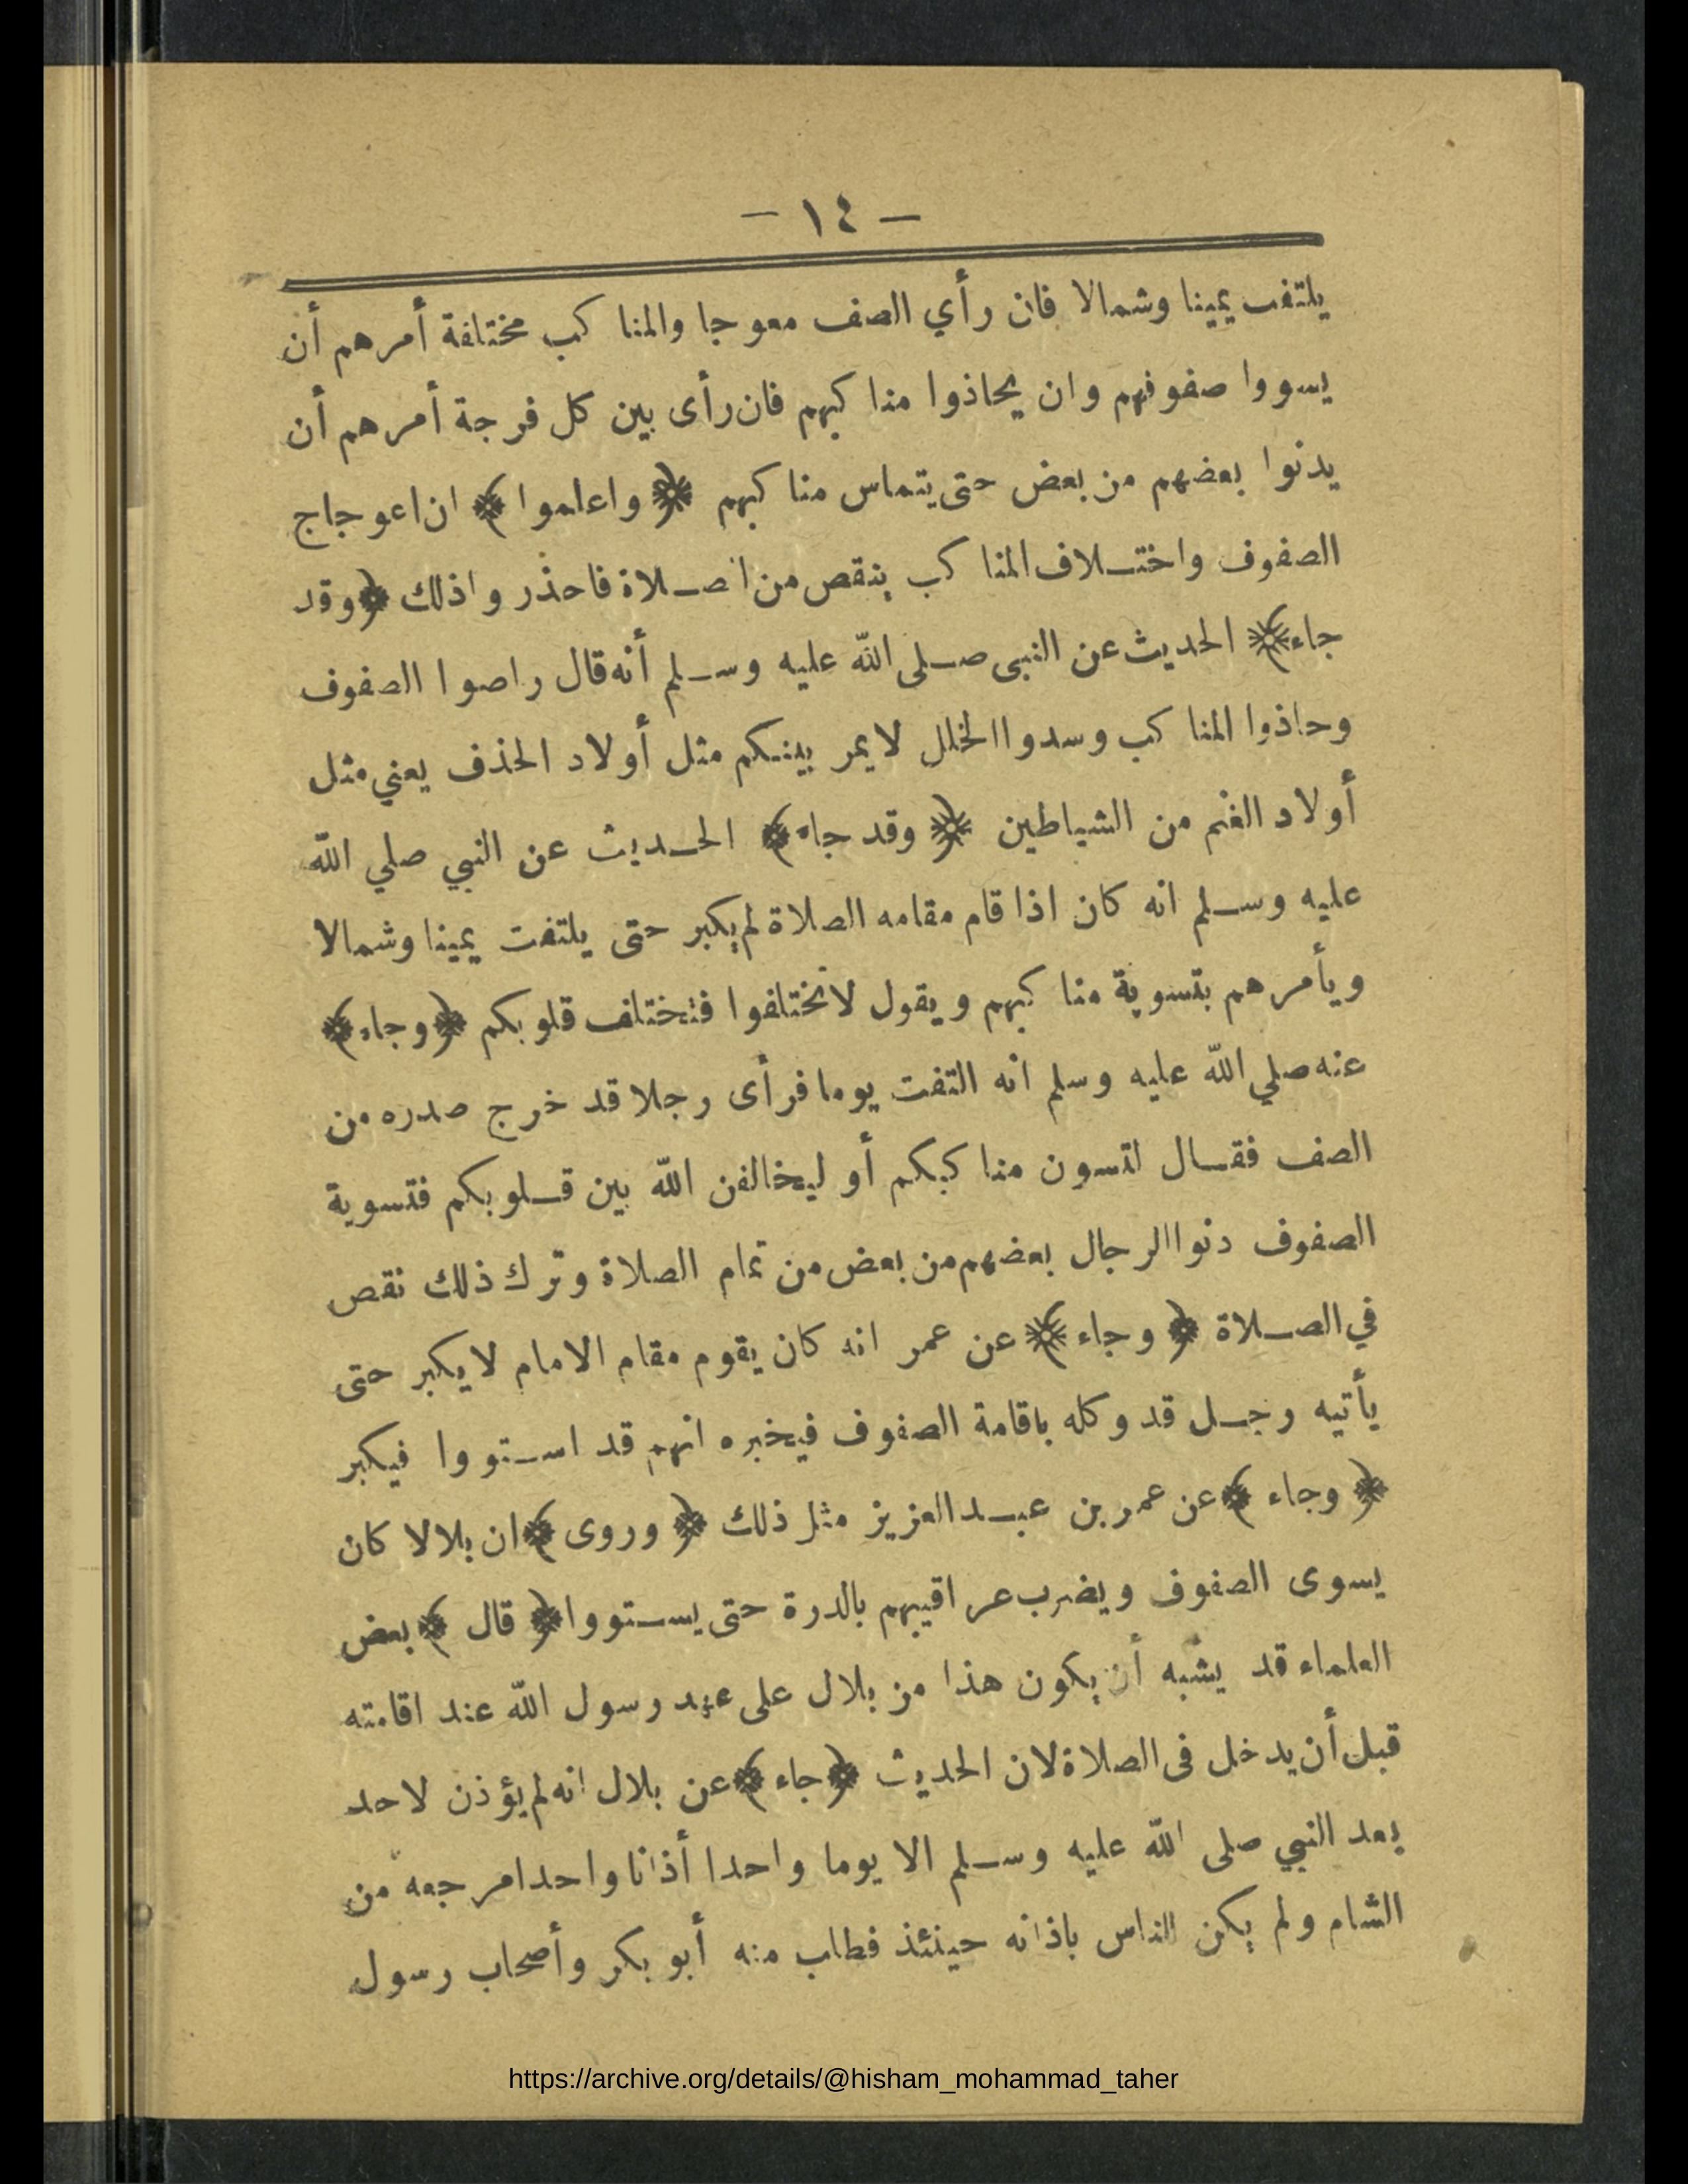 — ١٤ —
يلتفت يمينا وشمالا فان رأي الصف معوجا والمناكب مختلفة أمرهم أن
يسووا صفوفهم وان يحاذوا مناكبهم فان رأى بين كل فرجة أمرهم أن
يدنوا بعضهم من بعض حتى يتماس مناكبهم ﴿ واعلموا ﴾ ان اعوجاج
الصفوف واختـلاف المناكب ينقص من الصـلاة فاحذروا ذلك ﴿ وقد
جاء ﴾ الحديث عن النبى صـلى الله عليه وسـلم أنه قال راصوا الصفوف
وحاذوا المناكب وسدوا الخلل لا يمر بينـكم مثل أولاد الحذف يعني مثل
أولاد الغنم من الشياطين ﴿ وقد جاء ﴾ الحـديث عن النبي صلي الله
عليه وسـلم انه كان اذا قام مقامه الصلاة لم يكبر حتى يلتفت يمينا وشمالا
ويأمرهم بتسوية مناكبهم ويقول لا تختلفوا فتختلف قلوبكم ﴿ وجاء ﴾
عنه صلي الله عليه وسلم انه التفت يوما فرأى رجلا قد خرج صدره من
الصف فقـال لتسون مناكبكم أو ليخالفن الله بين قـلوبكم فتسوية
الصفوف دنوا الرجال بعضهم من بعض من تمام الصلاة وترك ذلك نقص
في الصـلاة ﴿ وجاء ﴾ عن عمر انه كان يقوم مقام الامام لا يكبر حتى
يأتيه رجـل قد وكله باقامة الصفوف فيخبره انهم قد اسـتووا فيكبر
﴿ وجاء ﴾ عن عمر بن عبـد العزيز مثل ذلك ﴿ وروى ﴾ ان بلالا كان
يسوى الصفوف ويضرب عراقيبهم بالدرة حتى يسـتووا ﴿ قال ﴾ بعض
العلماء قد يشبه أن يكون هذا من بلال على عهد رسول الله عند اقامته
قبل أن يدخل فى الصلاة لان الحديث ﴿ جاء ﴾ عن بلال انه لم يؤذن لاحد
بعد النبي صلى الله عليه وسـلم الا يوما واحدا أذانا واحدا مرجعه من
الشام ولم يكن الناس باذانه حينئذ فطلب منه أبو بكر وأصحاب رسول
https://archive.org/details/@hisham_mohammad_taher